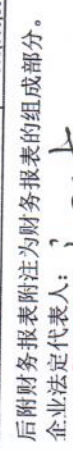 后附财务报表附注为财务报表的组成部分。
企业法定代表人：